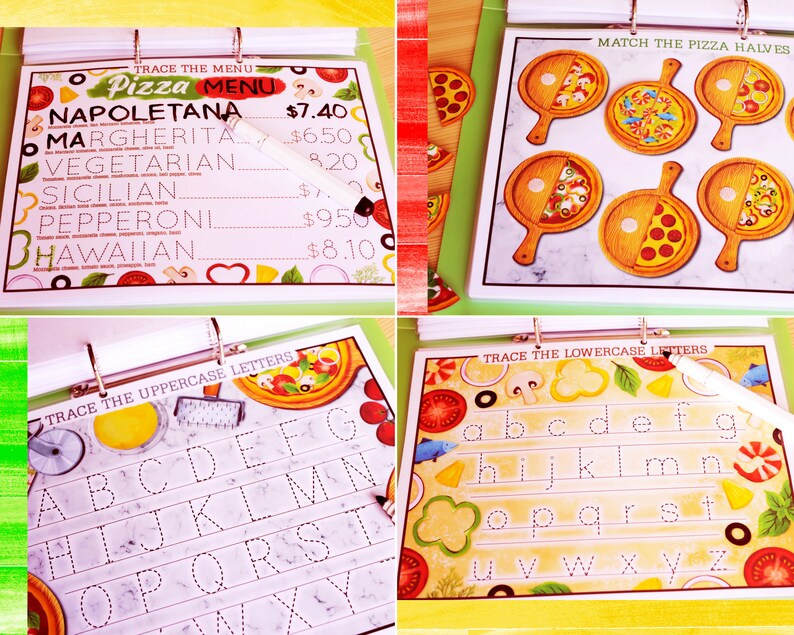 TRACE THE MENU
Pizza MENU
NAPOLETANA $7.40
Mozzarella cheese, San Marzano tomatoes, basil
MARGHERITA $6.50
San Marzano tomatoes, mozzarella cheese, olive oil, basil
VEGETARIAN 8.20
Tomatoes, mozzarella cheese, mushrooms, onions, bell pepper, olives
SICILIAN
Onions, Sicilian toma cheese, onions, anchovies, herbs
PEPPERONI $9.50
Tomato sauce, mozzarella cheese, pepperoni, oregano, basil
HAWAIIAN $8.10
Mozzarella cheese, tomato sauce, pineapple, ham
MATCH THE PIZZA HALVES
TRACE THE UPPERCASE LETTERS
A B C D E F G
H I J K L M N
O P Q R S T
U V W X Y
TRACE THE LOWERCASE LETTERS
a b c d e f g
h i j k l m n
o p q r s t
u v w x y z